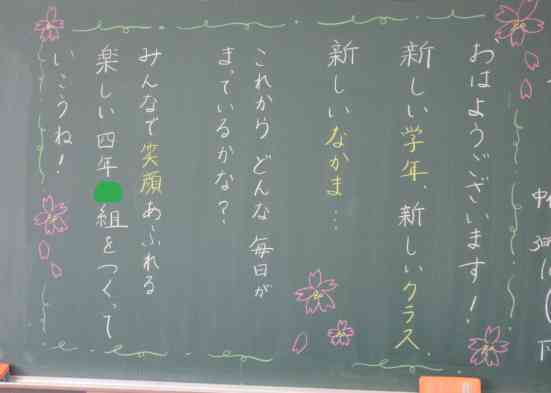 おはようございます!
新しい学年、新しいクラス
新しいなかま…
これから どんな 毎日が
まっているかな?
みんなで笑顔あふれる
楽しい四年組をつくって
いこうね!